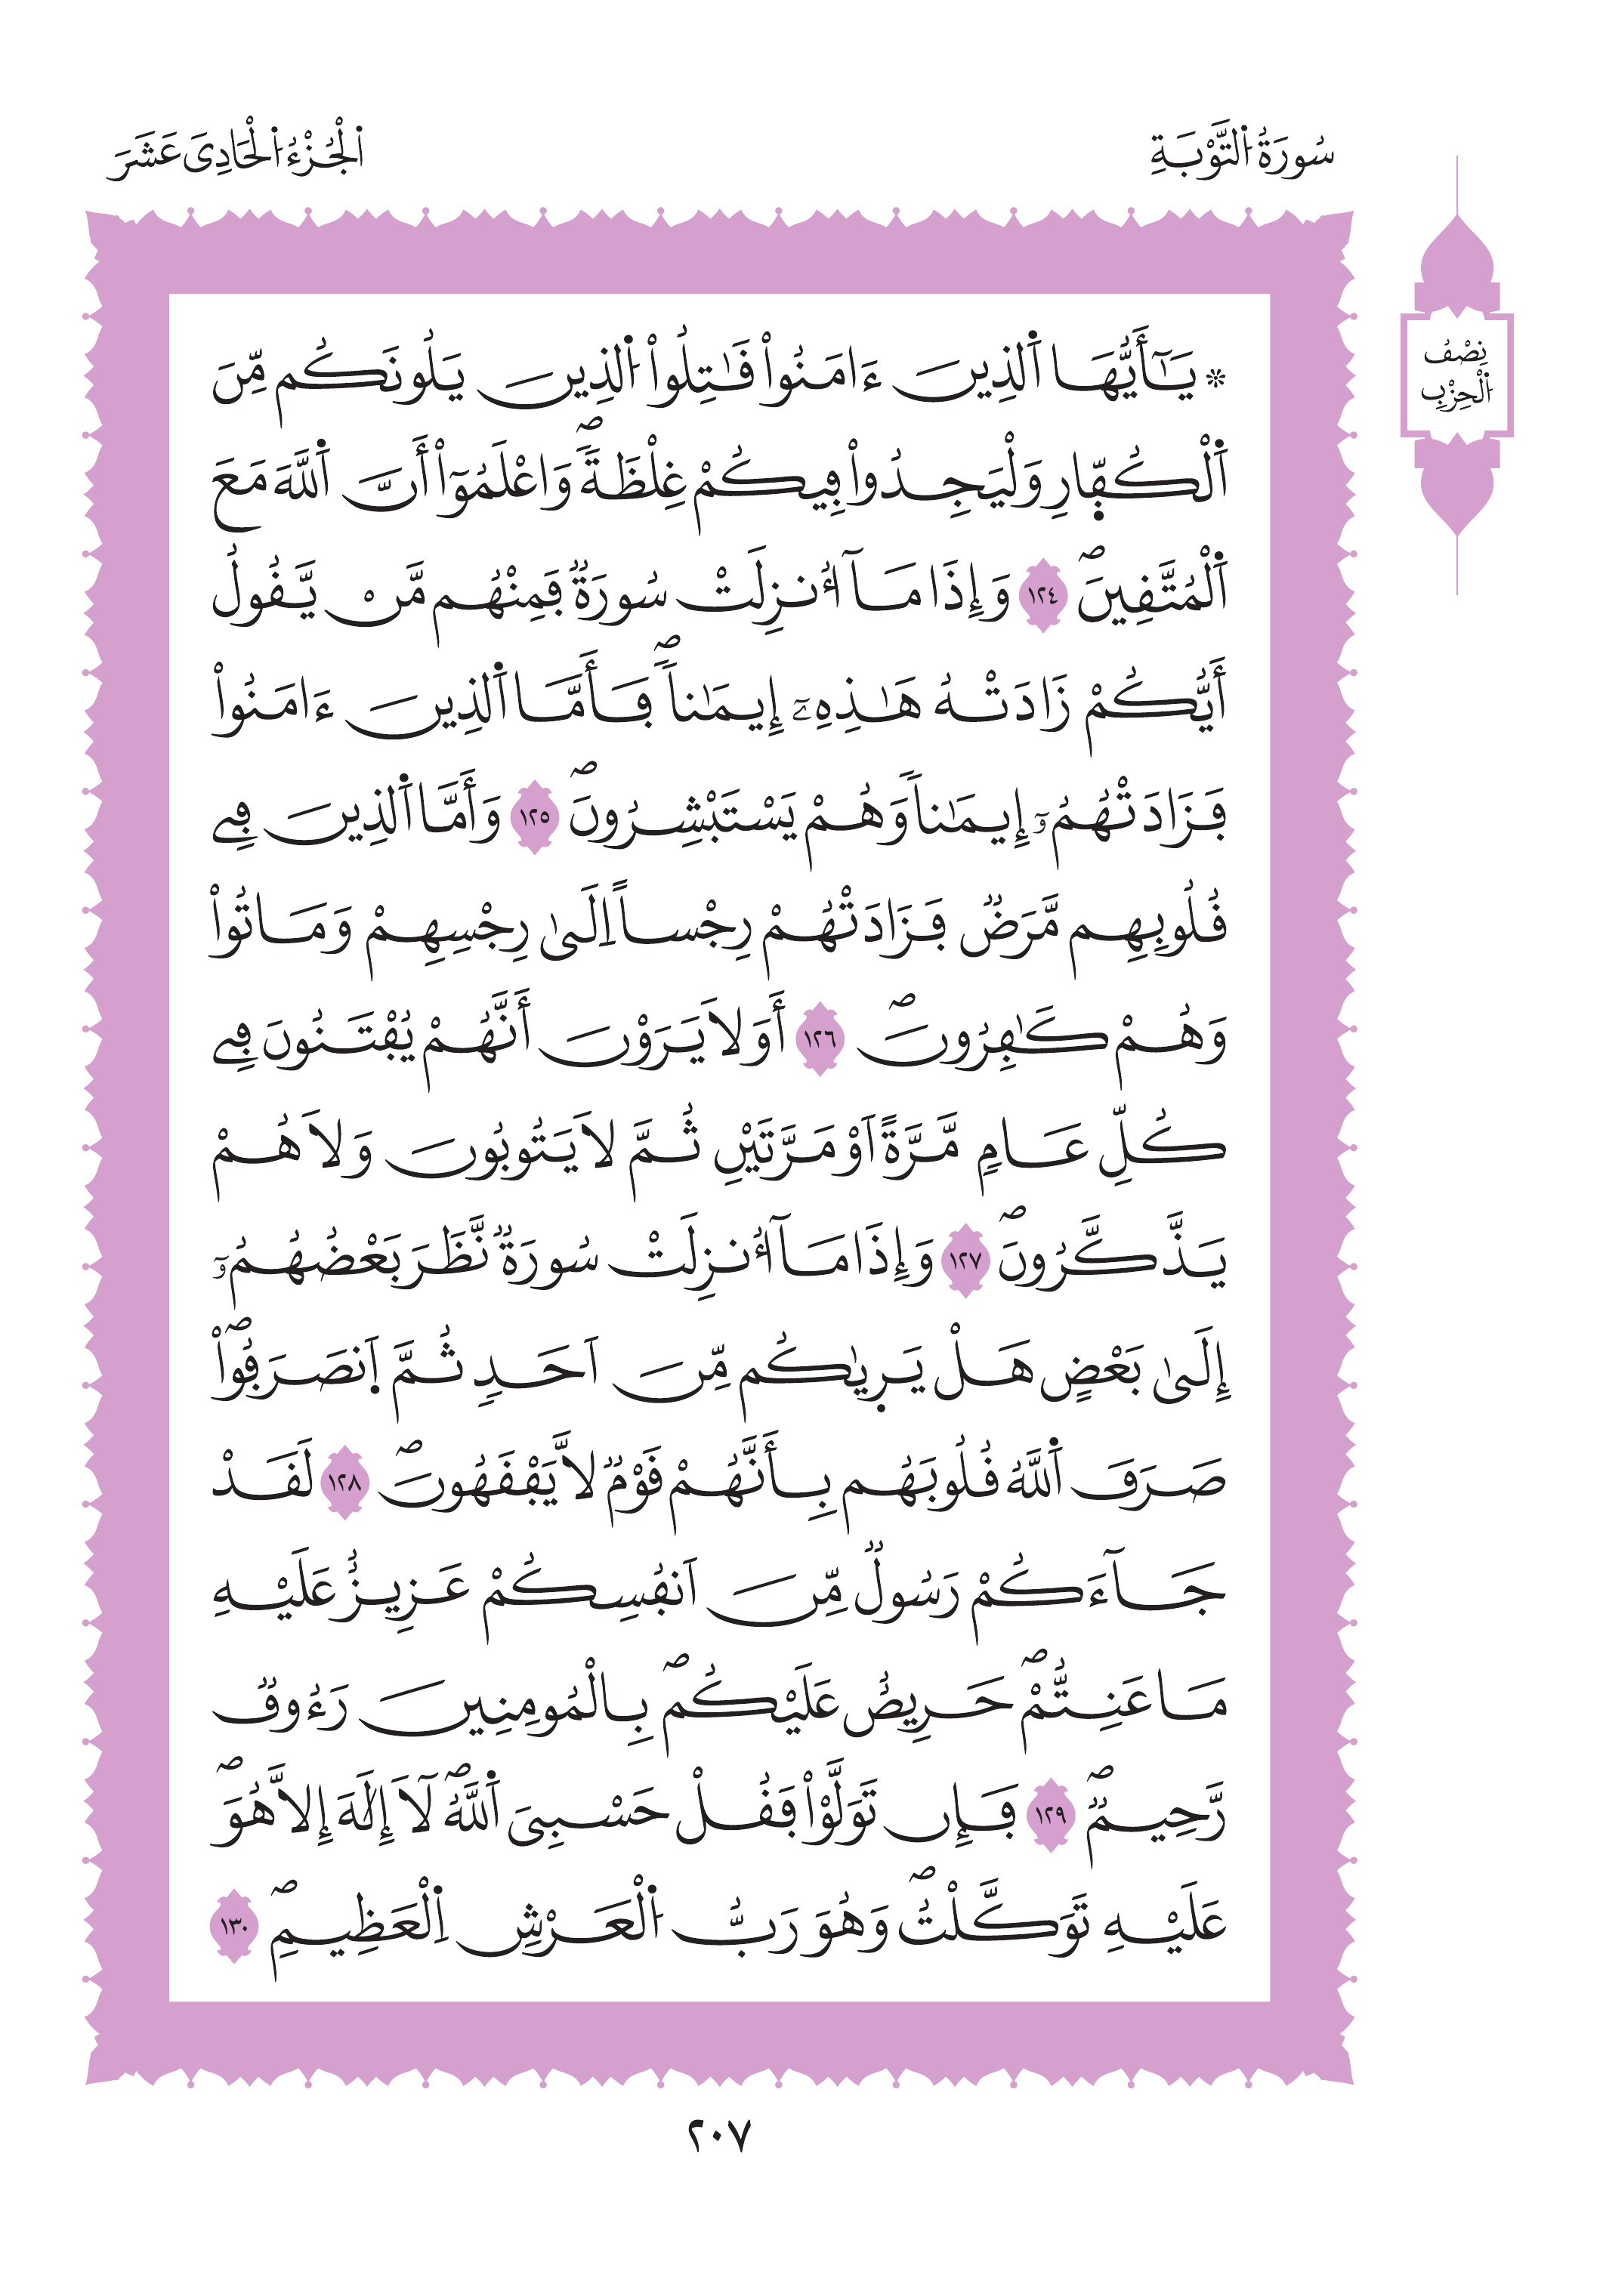 سُورَةُ اُ۬لتَّوْبَةِ
اَ۬لْجُزْءُ اُ۬لْحَادِيَ عَشَرَ
نِصْفُ
اُ۬لْحِزْبِ
۞ يَٰٓأَيُّهَا اَ۬لذِينَ ءَامَنُواْ قَٰتِلُواْ اُ۬لذِينَ يَلُونَكُم مِّنَ
اَ۬لْكُفّ۪ارِ وَلْيَجِدُواْ فِيكُمْ غِلْظَةٗۖ وَاعْلَمُوٓاْ أَنَّ اَ۬للَّهَ مَعَ
اَ۬لْمُتَّقِينَۖ ١٢٤ وَإِذَا مَآ أُنزِلَتْ سُورَةٞ فَمِنْهُم مَّنْ يَّقُولُ
أَيُّكُمْ زَادَتْهُ هَٰذِهِۦٓ إِيمَٰناٗۖ فَأَمَّا اَ۬لذِينَ ءَامَنُواْ
فَزَادَتْهُمُۥٓ إِيمَٰناٗ وَهُمْ يَسْتَبْشِرُونَۖ ١٢٥ وَأَمَّا اَ۬لذِينَ فِے
قُلُوبِهِم مَّرَضٞ فَزَادَتْهُمْ رِجْساً اِلَىٰ رِجْسِهِمْ وَمَاتُواْ
وَهُمْ كَٰفِرُونَۖ ١٢٦ أَوَلَا يَرَوْنَ أَنَّهُمْ يُفْتَنُونَ فِے
كُلِّ عَامٖ مَّرَّةً اَوْ مَرَّتَيْنِ ثُمَّ لَا يَتُوبُونَ وَلَا هُمْ
يَذَّكَّرُونَۖ ١٢٧ وَإِذَا مَآ أُنزِلَتْ سُورَةٞ نَّظَرَ بَعْضُهُمُۥٓ
إِلَىٰ بَعْضٍ هَلْ يَر۪يٰكُم مِّنَ اَحَدٖ ثُمَّ اَ۪نصَرَفُواْۖ
صَرَفَ اَ۬للَّهُ قُلُوبَهُم بِأَنَّهُمْ قَوْمٞ لَّا يَفْقَهُونَۖ ١٢٨ لَقَدْ
جَآءَكُمْ رَسُولٞ مِّنَ اَنفُسِكُمْ عَزِيزٌ عَلَيْهِ
مَا عَنِتُّمْۖ حَرِيصٌ عَلَيْكُمۖ بِالْمُومِنِينَ رَءُوفٞ
رَّحِيمٞۖ ١٢٩ فَإِن تَوَلَّوْاْ فَقُلْ حَسْبِيَ اَ۬للَّهُۖ لَآ إِلَٰهَ إِلَّا هُوَۖ
عَلَيْهِ تَوَكَّلْتُۖ وَهُوَ رَبُّ اُ۬لْعَرْشِ اِ۬لْعَظِيمِۖ ١٣٠
٢٠٧